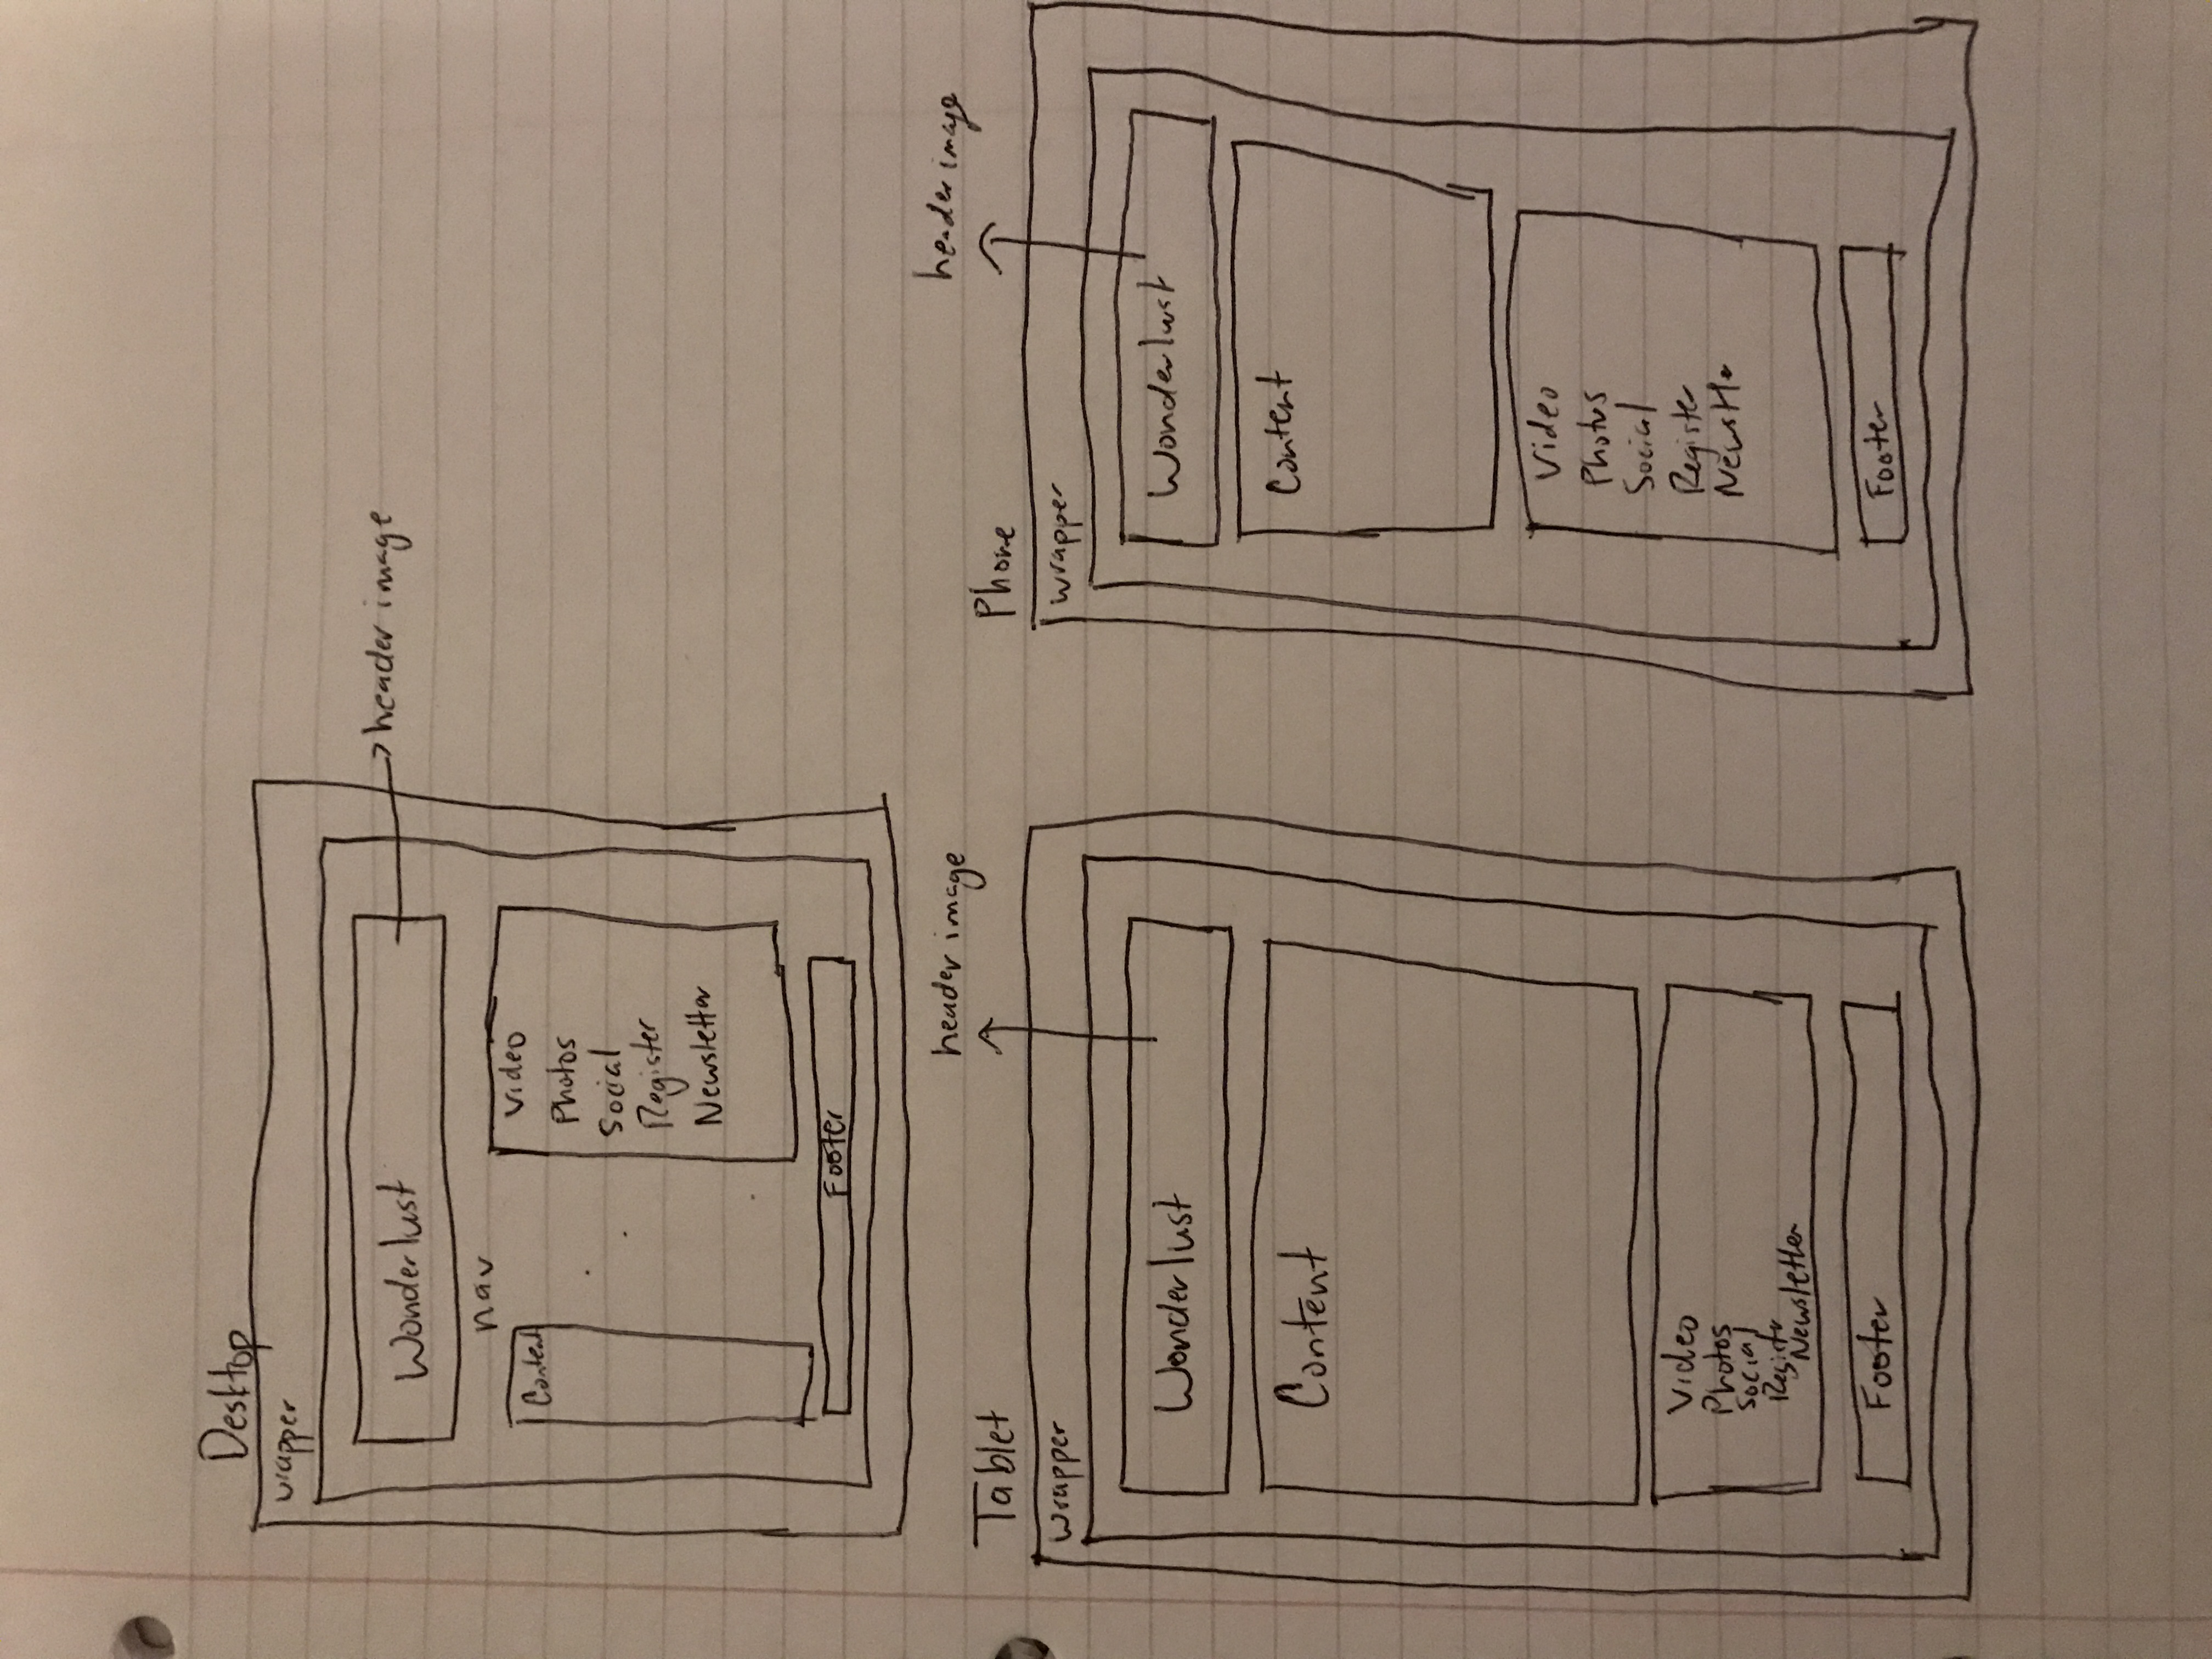 Desktop
wrapper
Wonderlust
header image
nav
Content
Video
Photos
Social
Register
Newsletter
Footer
header image
Tablet
wrapper
Wonderlust
Content
Video
Photos
Social
Register
Newsletter
Footer
header image
Phone
wrapper
Wonderlust
Content
Video
Photos
Social
Register
Footer